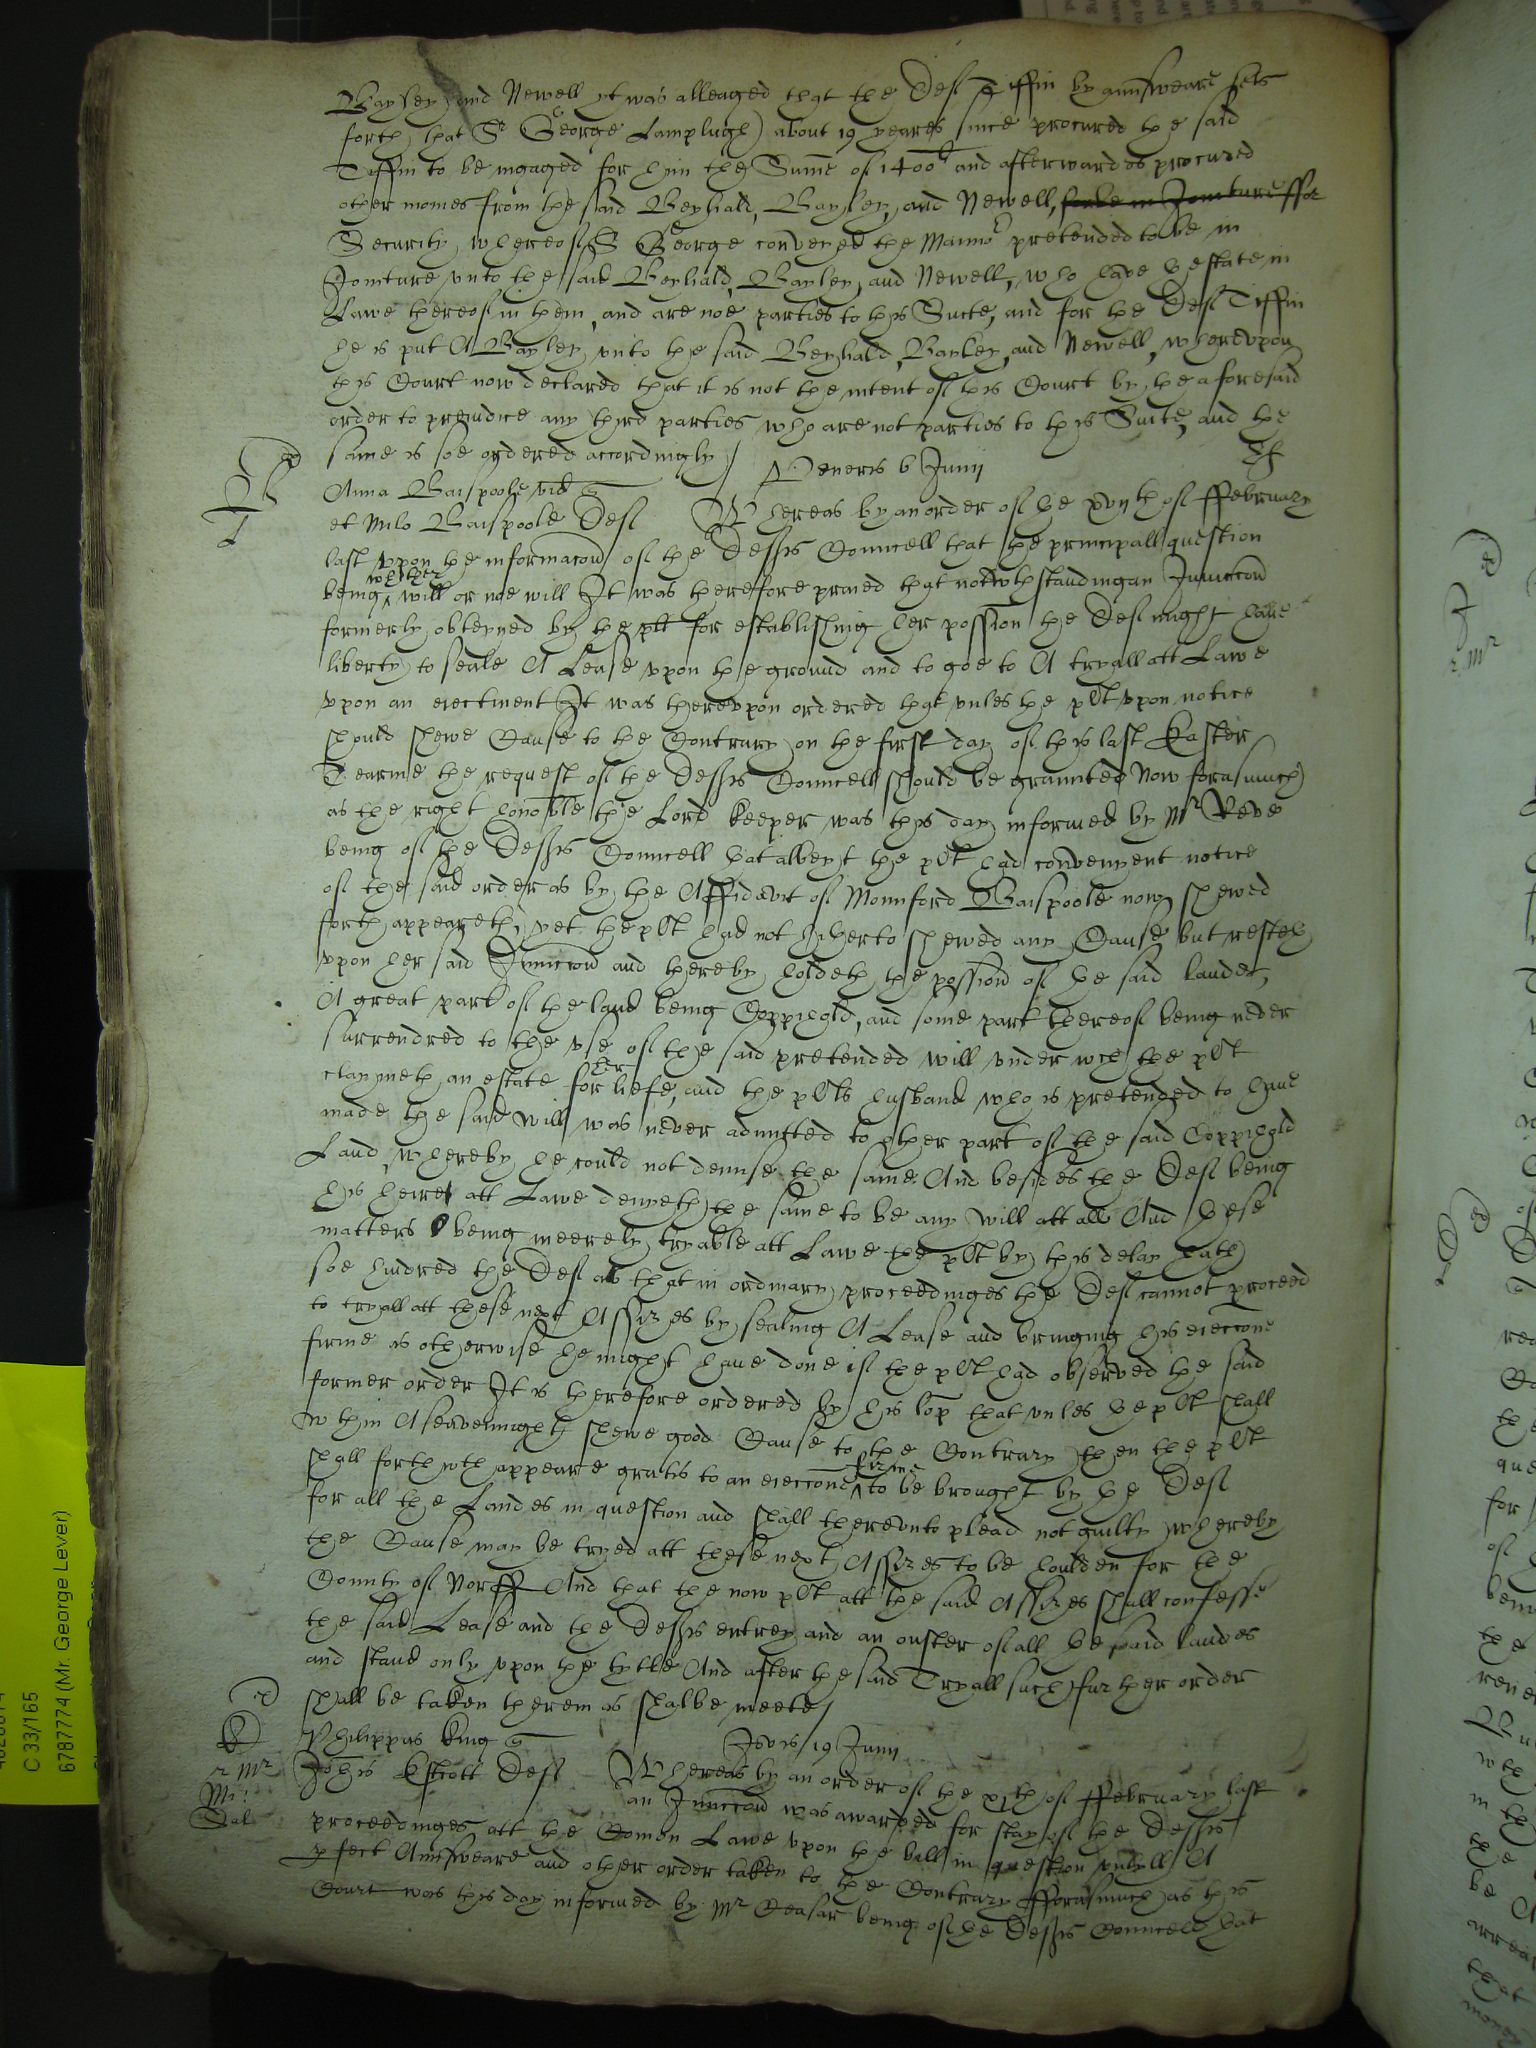 Bayley, and Newell yt was alleaged that the Deft Tiffin by aunsweare sets
forth that Sr George Lamplugh about 19 yeares since procured the said
Tiffin to be ingaged for him the Sume of 1400l and afterwardes procured
other monies from the said Beyhald, Bayley, and Newell, for
Security whereof Sr George conveyed the Mannor pretended to be in
Joynture vnto the said Beyhald, Bayley, and Newell, who have the state in
Lawe thereof in them, and are noe parties to this Suite, and for the Deft Tiffin
he is put A Bayley vnto the said Beyhald, Bayley, and Newell, wherevpon
this Court now declared that it is not the intent of this Court by the aforesaid
order to preiudice any third parties who are not parties to this Suite, and the
same is soe ordered accordingly/
Veneris 6 Junij
Anna Baispoole vid
et Milo Baispoole Deft Whereas by an order of the xvijth of ffebruary
last vpon the informacon of the Defts Councell that the principall question
being whether will or noe will It was therefore praied that notwthstanding an Iniunccon
formerly obteyned by the plt for establishing her possion the Deft might have
liberty to seale A Lease vpon the ground and to goe to A tryall att Lawe
vpon an eiectment It was therevpon ordered that vnles the plt vpon notice
should shewe Cause to the Contrary on the first day of this last Easter
Tearme the request of the Defts Councell should be graunted Now forasmuch
as the right honoble the Lord Keeper was this day informed by Mr Reve
being of the Defts Councell that albeyt the plt had convenyent notice
of the said order as by the Affidavit of Mounford Baispoole now shewed
forth appeareth, yet the plt had not hitherto shewed any Cause but resteth
vpon her said Iniunccon and thereby holdeth the possion of the said landes,
A great part of the land being Coppihold, and some part thereof being never
surrendred to the vse of the said pretended will vnder wch the plt
claymeth an estate for her liefe, and the plts husband who is pretended to have
made the said will was never admitted to other part of the said Coppihold
Land whereby he could not demise the same And besides the Deft being
his heire att Lawe denyeth the same to be any will att all And these
matters being meerely tryable att Lawe the plt by this delay hath
soe hindred the Deft as that in ordinary proceedinges the Deft cannot proceed
to tryall att these next Assizes by sealing A Lease and bringing his eieccone
firme as otherwise he might have done if the plt had observed the said
former order It is therefore ordered by his lop that vnles the plt shall
wthin A seavenmight shewe good Cause to the Contrary then the plt
shall forthwth appeare gratis to an eieccone firme to be brought by the Deft
for all the Landes in question and shall therevnto plead not guilty whereby
the Cause may be tryed att these next Assizes to be houlden for the
County of Norff And that the now plt att the said Assizes shall confesse
the said Lease and the Defts entrey and an ouster of all the said landes
and stand only vpon the tytle And after the said Tryall such further order
shall be taken therein as shalbe meete/
Philippus King
Jovis 19 Junij
Johis Estcott Deft Whereas by an order of the xjth of ffebruary last
an Iniunccon was awarded for stay of the Defts
proceedinges att the Comon Lawe vpon the bill in question vntill A
pfect Aunsweare and other order taken to the Contrary fforasmuch as this
Court was this day informed by Mr Ceasar being of the Defts Councell that
C 33/165
6787774 (Mr. George Lever)